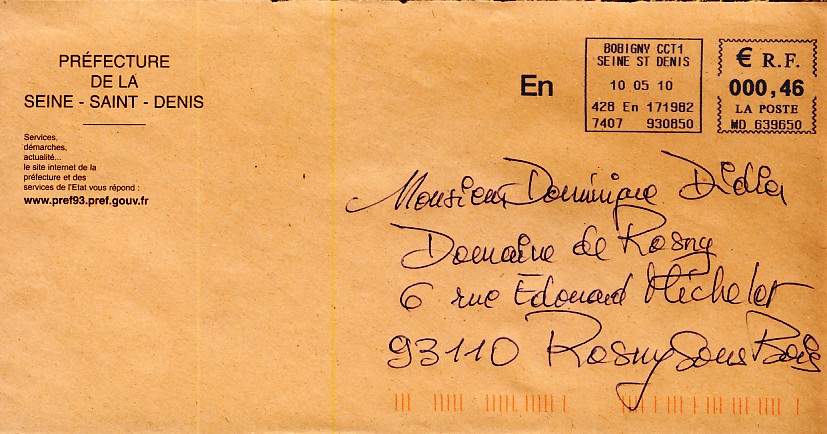 PRÉFECTURE
DE LA
SEINE - SAINT - DENIS
Services,
démarches,
actualité...
le site internet de la
préfecture et des
services de l'Etat vous répond :
www.pref93.pref.gouv.fr
En
BOBIGNY CCT1
SEINE ST DENIS
10 05 10
428 En 171982
7407 930850
€ R.F.
000,46
LA POSTE
MD 639650
Monsieur Dominique Didier
Domaine de Rosny
6 rue Edouard Michelet
93110 Rosny sous Bois